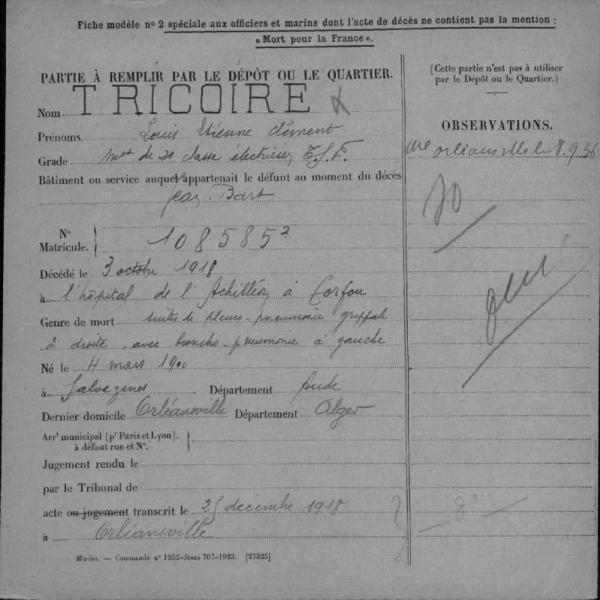 Fiche modèle n° 2 spéciale aux officiers et marins dont l'acte de décès ne contient pas la mention :
« Mort pour la France ».
PARTIE À REMPLIR PAR LE DÉPÔT OU LE QUARTIER.
Nom TRICOIRE
Prénoms Louis Etienne Clément
Grade Mot de 2e classe électricien T.S.F.
Bâtiment ou service auquel appartenait le défunt au moment du décès
Jean-Bart
N°
Matricule. 108585²
Décédé le 3 octobre 1918
à l'hôpital de l'Achilléon à Corfou
Genre de mort suites de pleuro-pneumonie grippale
à droite, avec broncho-pneumonie à gauche
Né le 4 mars 1900
à Salvezines Département Aude
Dernier domicile Orléansville Département Alger
Arr' municipal (p' Paris et Lyon).
à défaut rue et N°.
Jugement rendu le
par le Tribunal de
acte ou jugement transcrit le 25 décembre 1918
à Orléansville
Marine. — Commande n° 1252-Jésus 707-1923. [27525]
(Cette partie n'est pas à utiliser
par le Dépôt ou le Quartier).
OBSERVATIONS.
Orléansville le 8.9.36